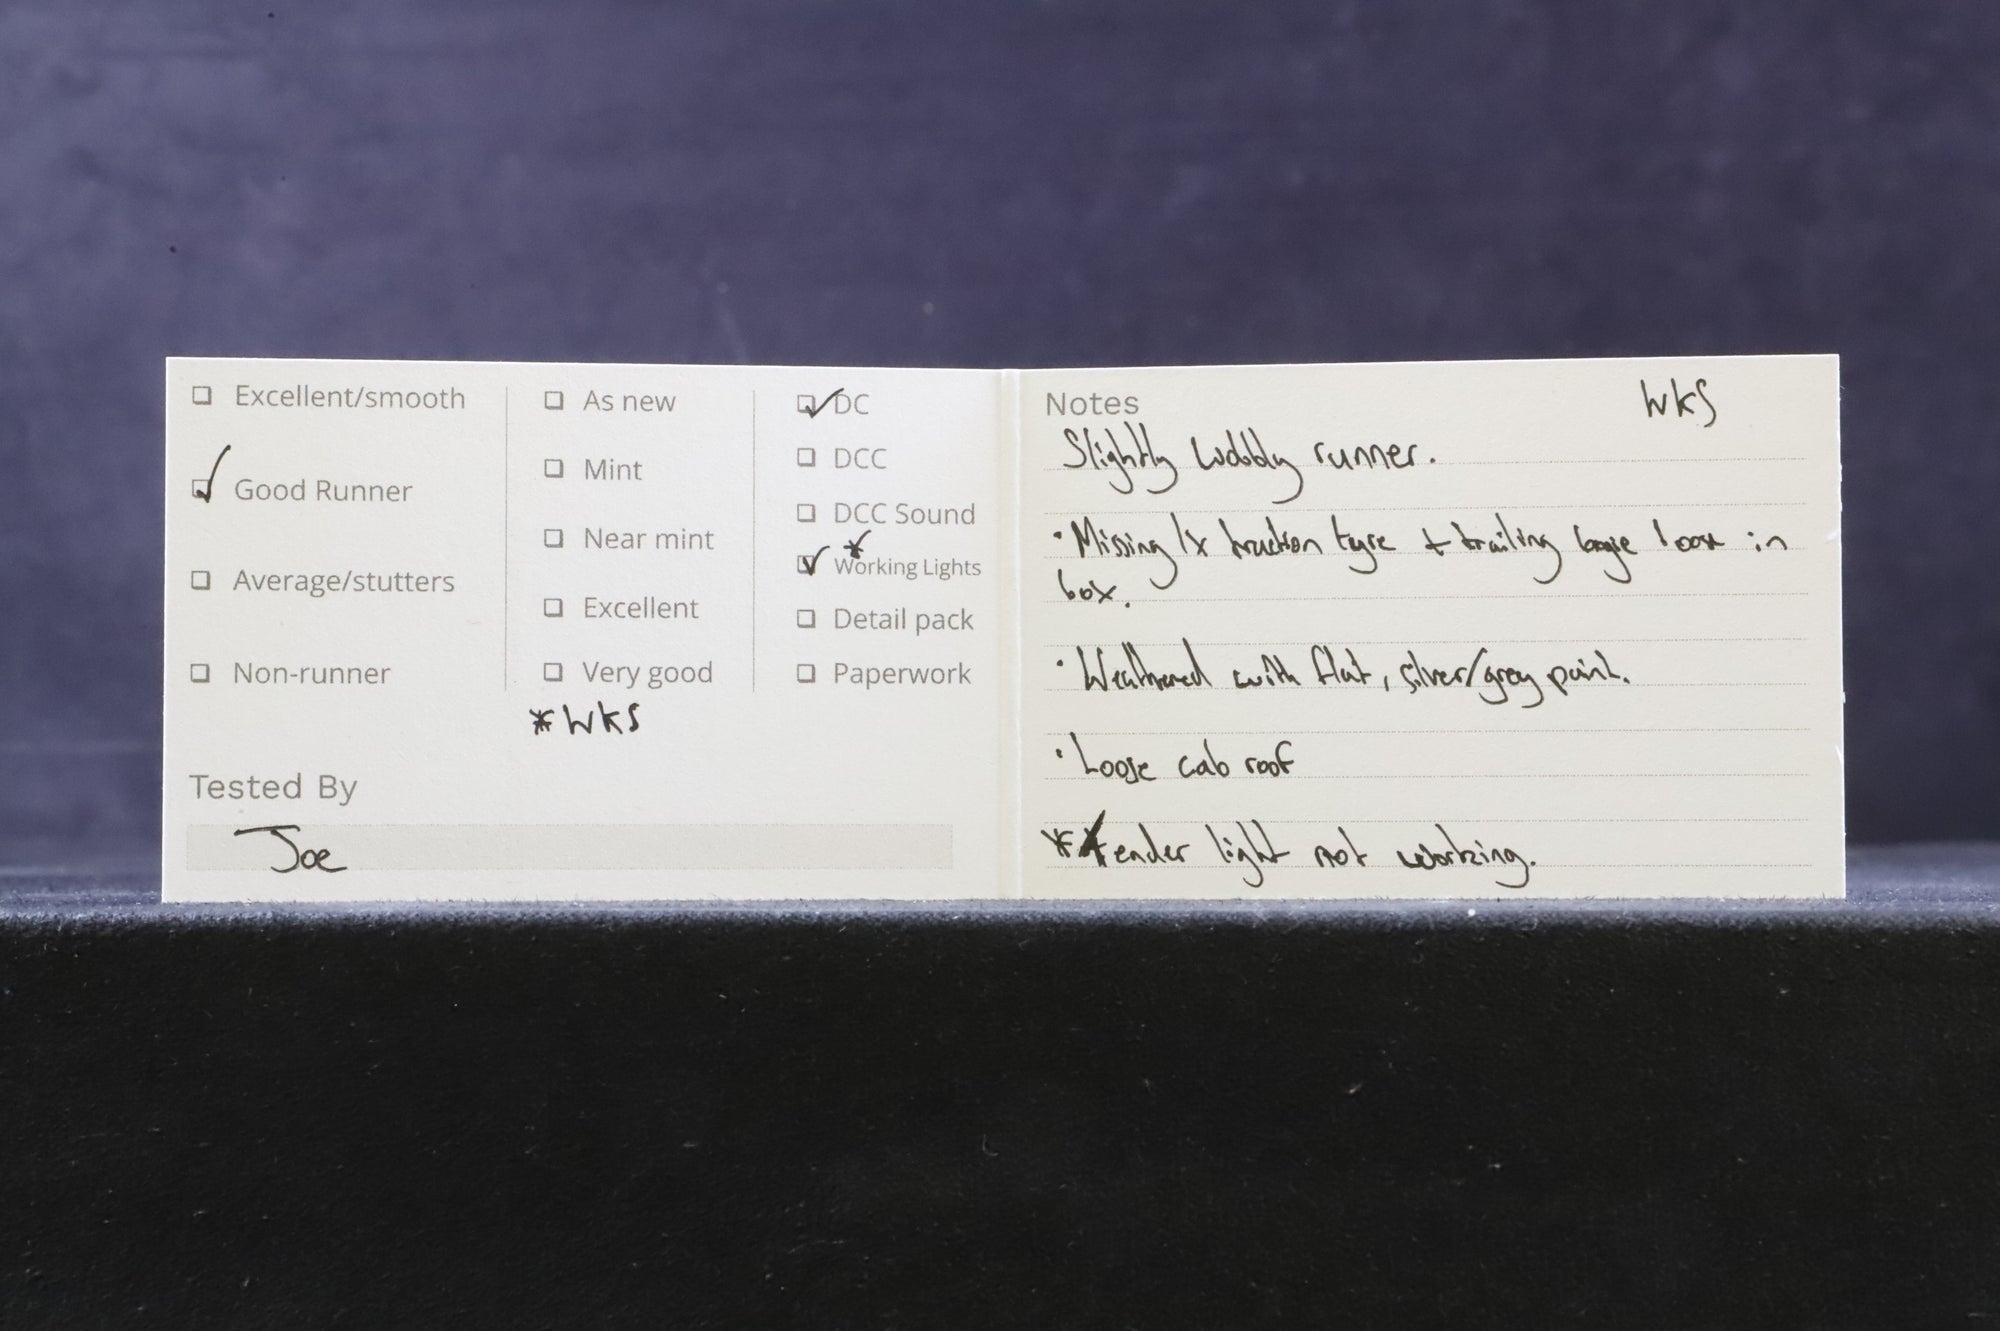 Excellent/smooth
Good Runner
Average/stutters
Non-runner
As new
Mint
Near mint
Excellent
Very good
*WKS
DC
DCC
DCC Sound
*
Working Lights
Detail pack
Paperwork
Tested By
Joe
Notes WKS
Slightly wobbly runner.
• Missing 1x traction tyre + trailing bogie loose in
box.
• Weathered with flat, silver/grey paint.
• Loose cab roof
* tender light not working.